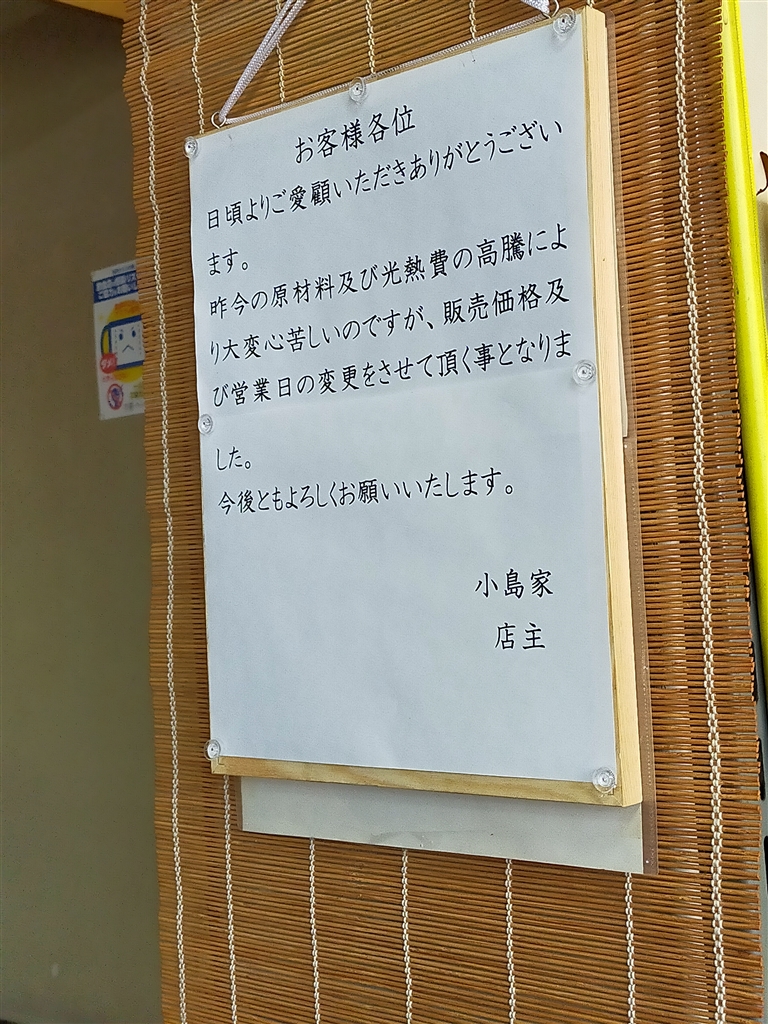 お客様各位
日頃よりご愛顧いただきありがとうござい
ます。
昨今の原材料及び光熱費の高騰によ
り大変心苦しいのですが、販売価格及
び営業日の変更をさせて頂く事となりま
した。
今後ともよろしくお願いいたします。
小島家
店主